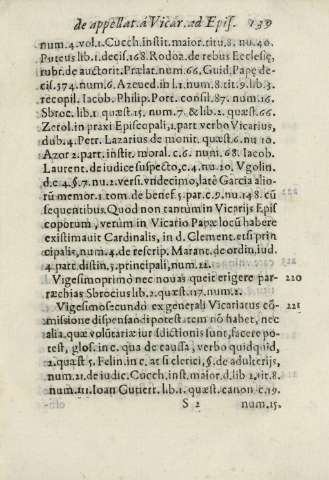 de appellat. à Vicar. ad Epis. 139
num. 4. vol. 1. Cucch. instit. maior. titu. 8. nu. 40.
Puteus lib. 1. decis. 168. Rodoz. de rebus Ecclesię,
rubr. de auctorit. Prælat. num. 66. Guid. Papę de-
cis. 574. num. 6. Azeued. in l. 1. num. 8. tit. 9. lib. 3.
recopil. Iacob. Philip. Port. consil. 87. num. 16.
Sbroc. lib. 1. quæst. 15. num. 7. & lib. 2. quæst. 66.
Zerol. in praxi Episcopali, 1. part verbo Vicarius,
dub. 4. Petr. Lazarius de monit. quæst. 6. nu 10.
Azor 2. part. instit. moral. c. 6. num. 68. Iacob.
Laurent. de iudice suspecto, c. 4. nu. 20. Vgolin.
d. c. 4. §. 7. nu. 2. versi. vndecimo, latè Garcia alio-
rũ memor. 1. tom. de benef. 5. par. c. 9. nu. 148. cũ
sequentibus. Quod non tantum in Vicarijs Epis
coporum, verum in Vicario Papæ locũ habere
existimauit Cardinalis, in d. Clement. etsi prin
cipalis, num. 4. de rescrip. Marant. de ordin. iud.
4. part. distin. 5. principali, num. 12.
Vigesimoprimo nec nouas queit erigere par- 220
rœchias Sbrocius lib. 2. quæst. 17. num. 2.
Vigesimosecundo ex generali Vicariatus cõ- 221
missione dispensandi potest. tem nõ habet, nec
alia. quæ volũtariæ iurisdictionis sunt, facere po-
test, glos. in c. qua de caussa, verbo quidquid,
2. quæst. 5. Felin. in c. at si clerici, §. de adulterijs,
num. 21. de iudic. Cucch. inst. maior. d. lib 2. tit. 8.
num. 111. Ioan Gutierr. lib. 1. quæst. canon c. 19.
S 2 num. 15.